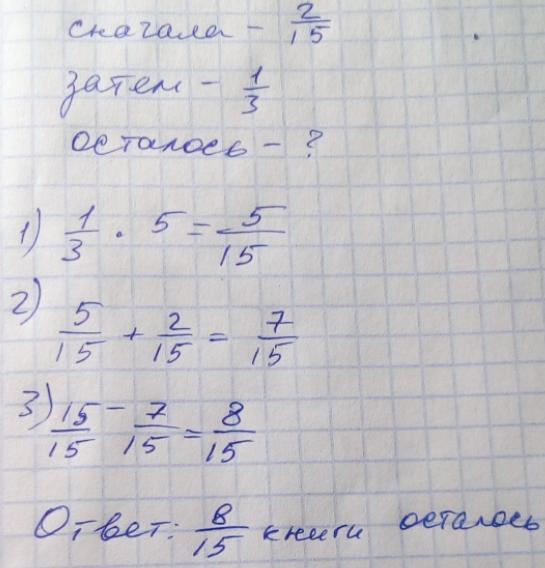 сначала - 2/15
затем - 1/3
осталось - ?
1) 1/3 · 5 = 5/15
2) 5/15 + 2/15 = 7/15
3) 15/15 - 7/15 = 8/15
Ответ: 8/15 книги осталось